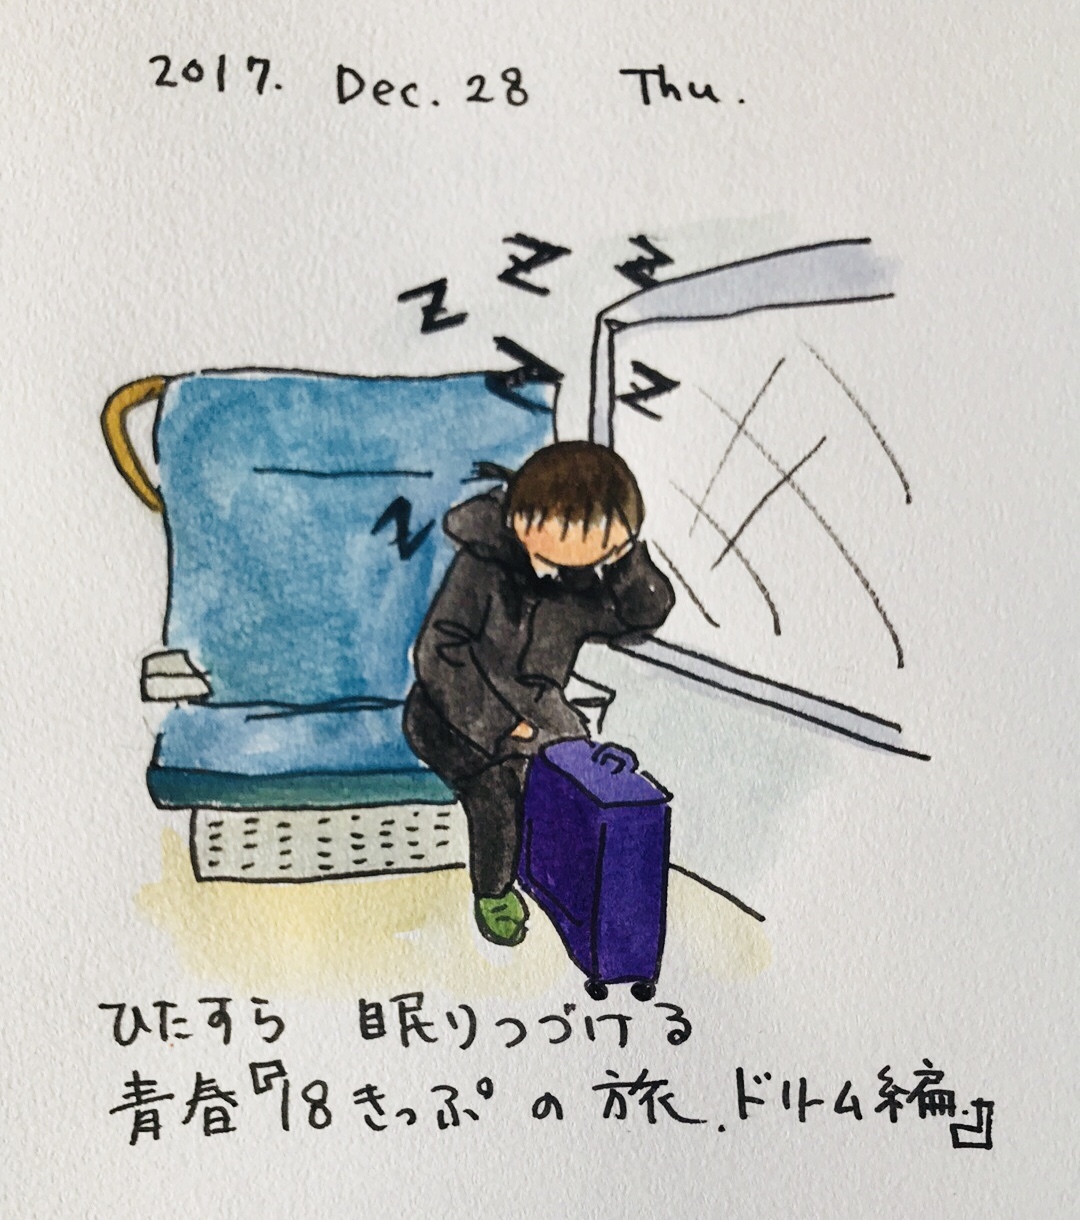 2017. Dec. 28 Thu.
Z Z
Z
Z Z
Z
ひたすら 眠りつづける
青春『18きっぷ の 旅.ドリーム編.』